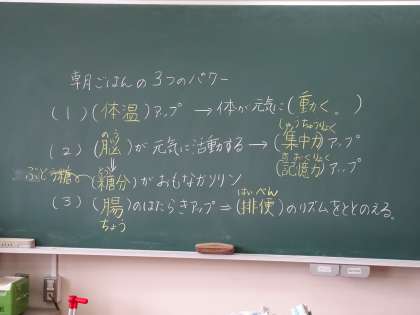 朝ごはんの3つのパワー
(1)(体温)アップ → 体が元気に(動く。)
のう しゅうちゅうりょく
(2)(脳)が元気に活動する → (集中力)アップ
きおくりょく
(記憶力)アップ
ぶどう糖 とう
(糖分)がおもなガソリン
はいべん
(3)(腸)のはたらきアップ ⇒ (排便)のリズムをととのえる。
ちょう